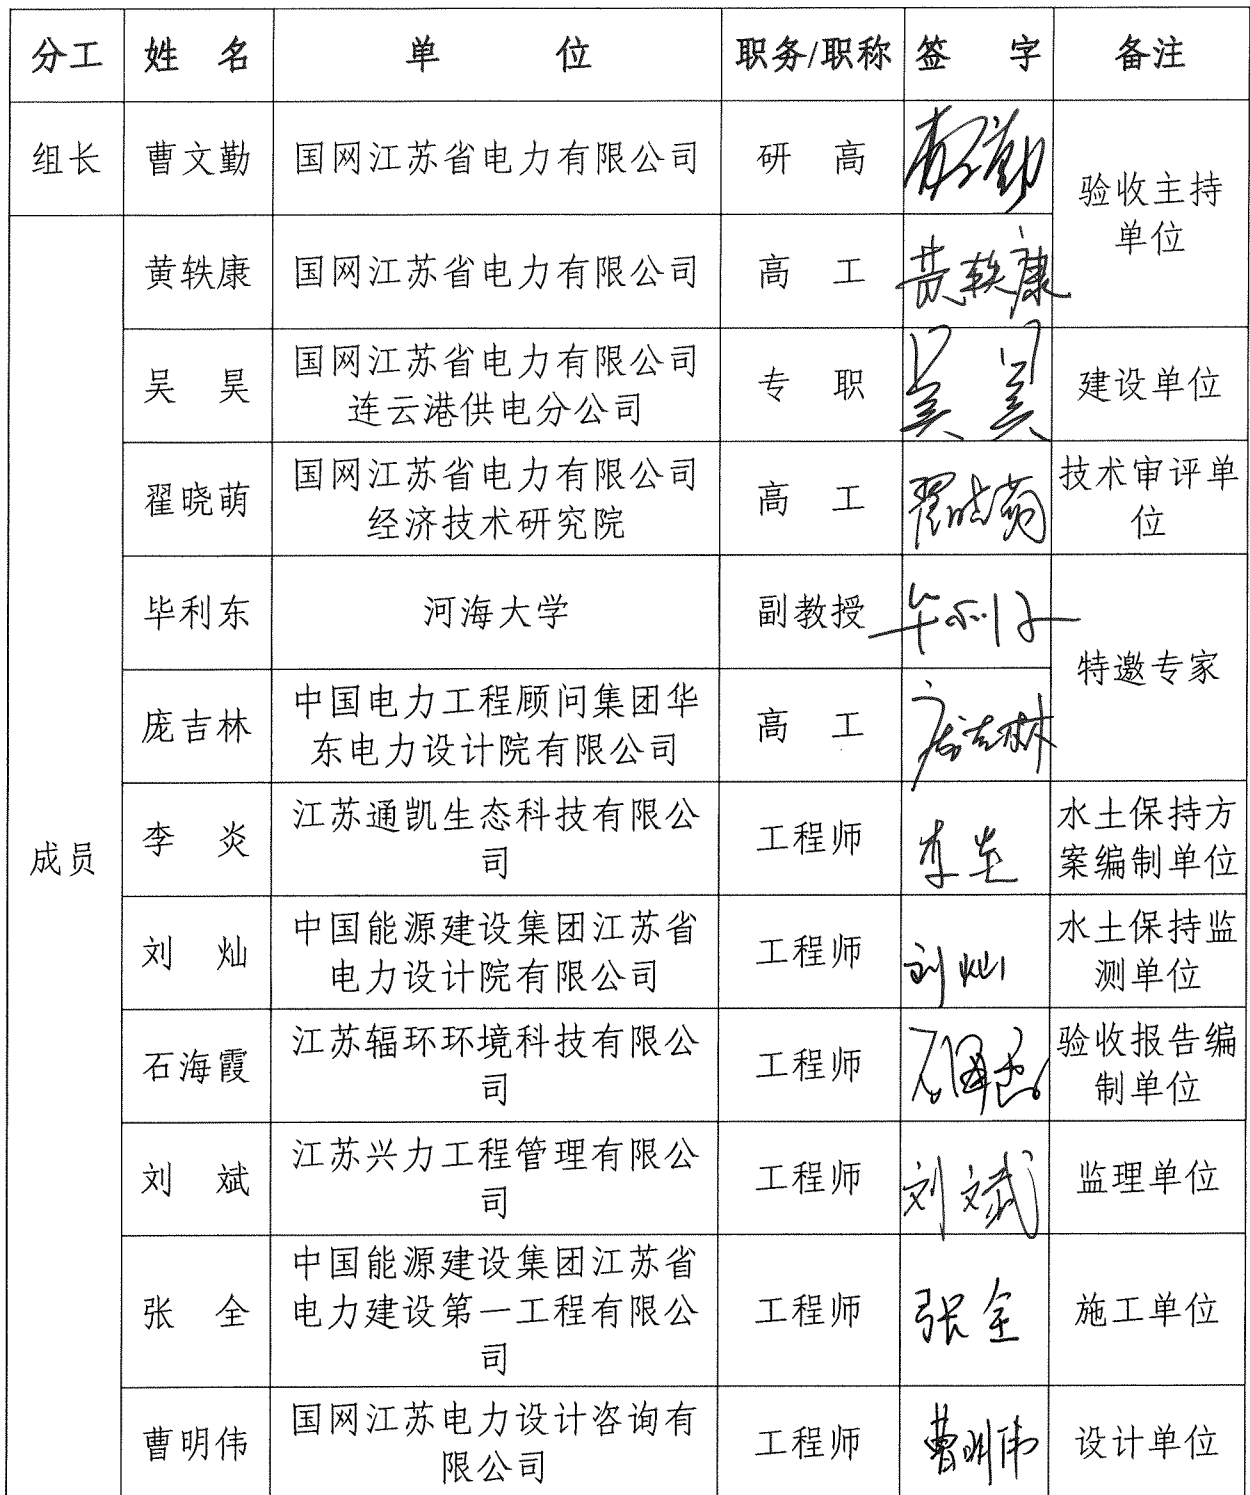 分工 姓 名 单 位 职务/职称 签 字 备注
组长 曹文勤 国网江苏省电力有限公司 研 高
验收主持
单位
成员
黄轶康 国网江苏省电力有限公司 高 工 黄轶康
吴 昊 国网江苏省电力有限公司
连云港供电分公司
专 职 吴 昊 建设单位
翟晓萌 国网江苏省电力有限公司
经济技术研究院
高 工 翟晓萌 技术审评单
位
毕利东 河海大学 副教授 毕利东
特邀专家
庞吉林 中国电力工程顾问集团华
东电力设计院有限公司
高 工 庞吉林
李 炎 江苏通凯生态科技有限公
司
工程师 李炎 水土保持方
案编制单位
刘 灿 中国能源建设集团江苏省
电力设计院有限公司
工程师 刘灿 水土保持监
测单位
石海霞 江苏辐环环境科技有限公
司
工程师 石海霞 验收报告编
制单位
刘 斌 江苏兴力工程管理有限公
司
工程师 刘斌 监理单位
张 全 中国能源建设集团江苏省
电力建设第一工程有限公
司
工程师 张全 施工单位
曹明伟 国网江苏电力设计咨询有
限公司
工程师 曹明伟 设计单位